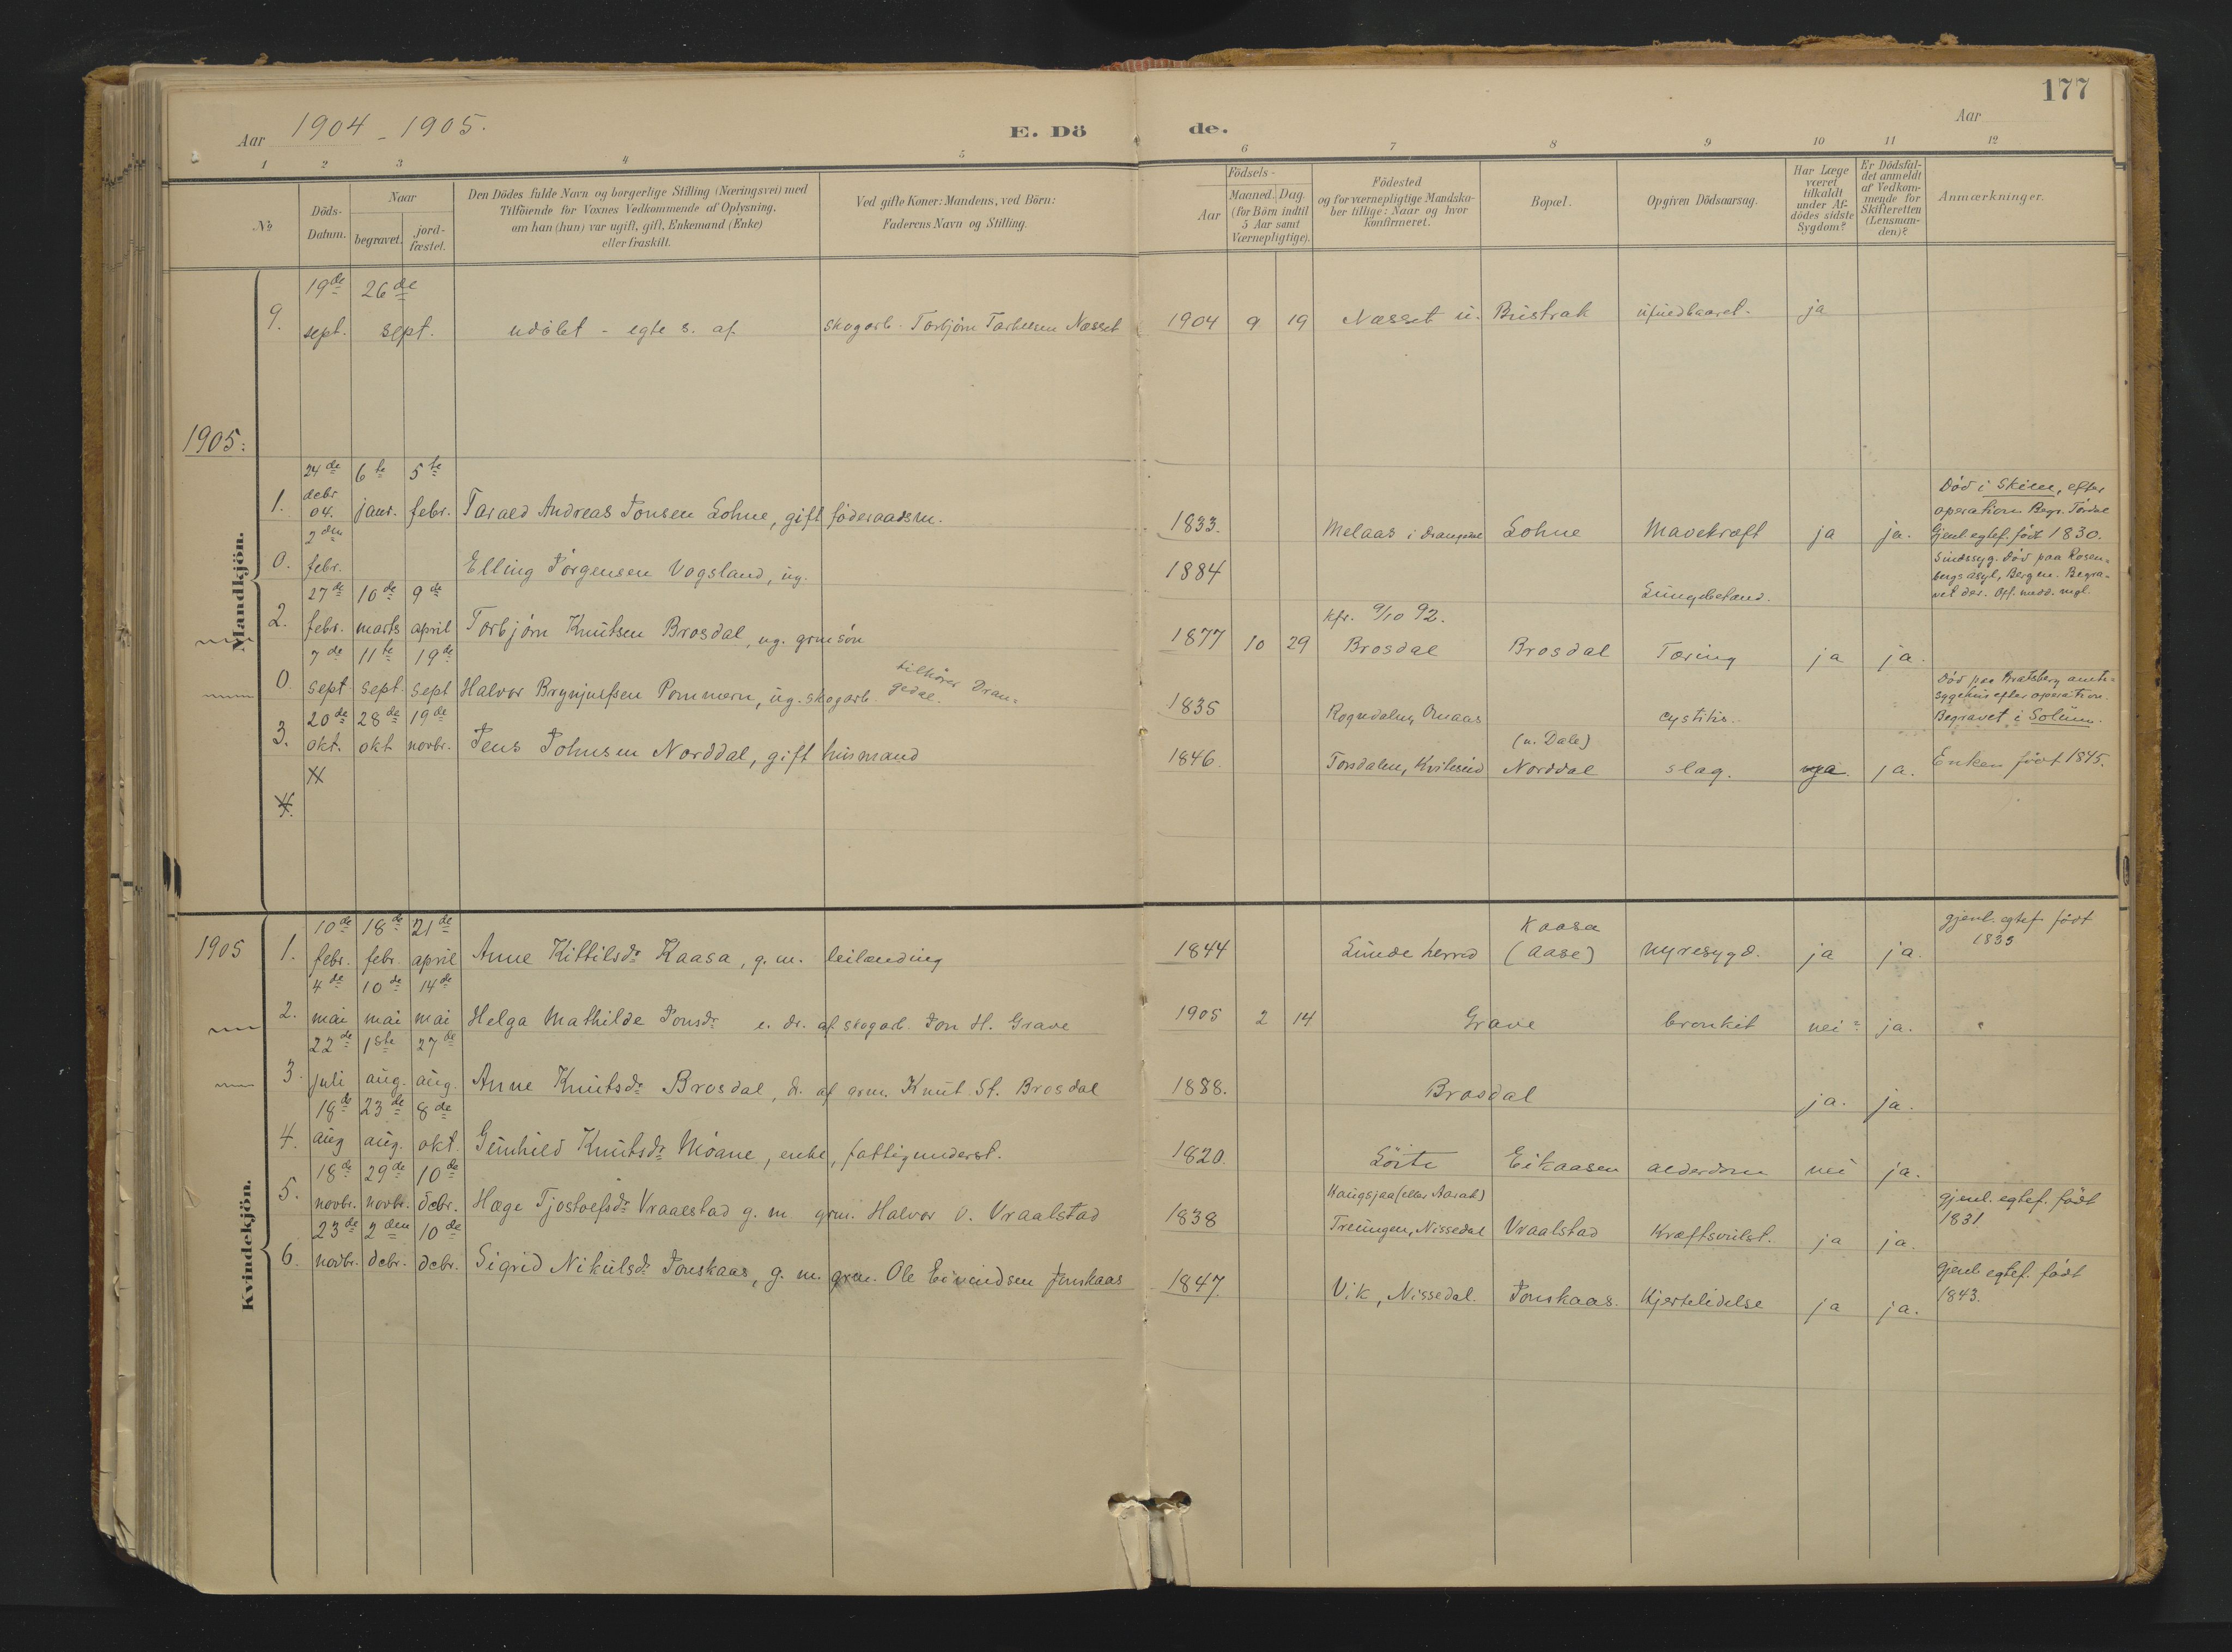 177
Aar 1904 - 1905.
E. Dö de.
Aar
1 2 3 4 5 6 7 8 9 10 11 12
№
Döds-Datum.
Naar
begravet.
jord-fæstet.
Den Dödes fulde Navn og borgerlige Stilling (Næringsvei) med
Tilföiende for Voxnes Vedkommende af Oplysning,
om han (hun) var ugift, gift, Enkemand (Enke)
eller fraskilt.
Ved gifte Koner: Mandens, ved Börn:
Faderens Navn og Stilling.
Födsels-
Aar
Maaned. Dag.
(for Börn indtil
5 Aar samt
Værnepligtige).
Födested
og for værnepligtige Mandska-
ber tillige: Naar og hvor
konfirmeret.
Bopæl.
Opgiven Dödsaarsag.
Har Læge
været
tilkaldt
under Af-
dödes sidste
Sygdom?
Er Dödsfal-
det anmeldt
af Vedkom-
mende for
Skifteretten
(Lensman-
den)?
Anmærkninger.
Mandkjön.
9. 19de sept. 26de sept. udöbt - egte s. af skogarb. Torbjörn Tarkelsen Næsset 1904 9 19 Næsset u. Bustrak ufuldbaaret. ja
1905:
1. 24de debr. 04. 6te janr. 5te febr. Tarald Andreas Jonsen Lohne, gift föderaadsm. 1833. Melaas i Drangedal Lohne Mavekræft ja ja.
Död i Skien, efter
operation Begr. Tördal
Gjenl. egtef. födt 1830.
0. 2den febr. Elling Jörgensen Vogsland, ug. 1884
Sindssyg. Död paa Rosen-
bergs asyl, Bergen. Begra-
vet der. Off. medd. mgl.
2. 27de febr. 10de marts 9de april Torbjörn Knutsen Brosdal, ug. grm sön 1877 10 29 kfr. 9/10 92. Brosdal Brosdal Lungebetænd. Tæring ja ja.
0 7de sept 11te sept. 19de sept Halvor Brynjulfsen Pommern, ug. skogarb. tilhörer Dran-
gedal. 1835 Rognedalen, Omaas cystitis.
Död paa Bratsberg amts-
sygehus efter operation.
Begravet i Solum.
3. 20de okt. 28de okt 19de novbr. Jens Johnsen Norddal, gift husmand 1846. Torsdalen, Kviteseid (u. Dale) Norddal slag. ja ja. Enken födt 1845.
4.
Kvindekjön.
1905 1. 10de febr. 18de febr. 21de april Anne Kittilsdr Kaasa, g. m. leilænding 1844 Lunde herred Kaasa (Aase) nyresygd. ja ja.
gjenl. egtef. födt
1835
2. 4de mai 10de mai 14de mai Helga Mathilde Jonsdr e. dr. af skogarb. Jon H. Grave 1905 2 14 Grave bronkit nei ja.
3. 22de juli 1ste aug. 27de aug. Anne Knutsdr Brosdal, d. af grm. Knut St. Brosdal 1888. Brosdal ja. ja.
4. 18de aug 23de aug. 8de okt. Gunhild Knutsdr Möane, enke, fattigunderst. 1820. Löite Eikaasen alderdom nei ja.
5. 18de novbr. 29de novbr. 10de debr. Hæge Tjostolfsdr Vraalstad g. m grm. Halvor O. Vraalstad 1838 Haugsjaa (eller Aarak)
Treungen, Nissedal Vraalstad Kræftsvulst. ja ja.
gjenl. egtef. födt
1831
6. 23de novbr. 2den debr. 10de debr. Sigrid Nikulsdr Jonskaas, g. m. grm. Ole Eivindsen Jonskaas 1847. Vik, Nissedal. Jonskaas. Hjertelidelse ja ja.
gjenl. egtef. födt
1843.